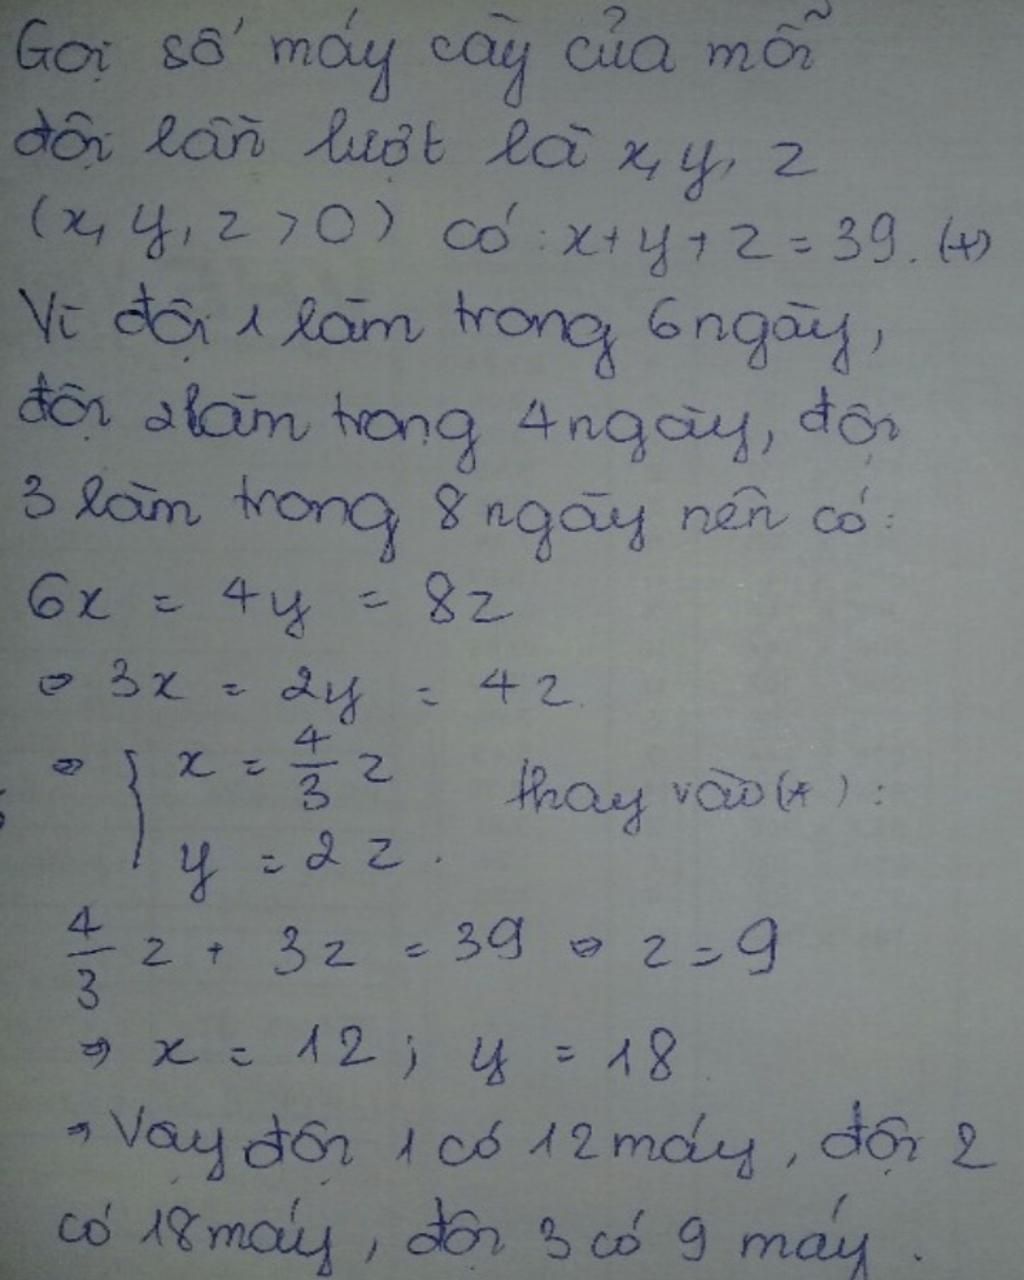 Gọi số máy cày của mỗi
đội lần lượt là x, y, z
(x, y, z > 0) có: x+y+z = 39. (*)
Vì đội 1 làm trong 6 ngày,
đội 2 làm trong 4 ngày, đội
3 làm trong 8 ngày nên có:
6x = 4y = 8z
⇔ 3x = 2y = 4z.
⇔ { x = 4/3 z thay vào (*):
y = 2z.
4/3 z + 3z = 39 ⇔ z = 9
⇒ x = 12; y = 18.
⇒ Vậy đội 1 có 12 máy, đội 2
có 18 máy, đội 3 có 9 máy.